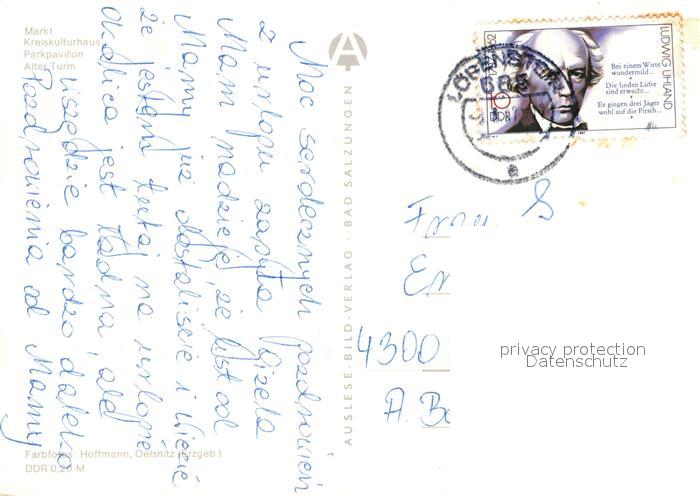 Markt
Kreiskulturhaus
Parkpavillon
Alter Turm
Moc serdecznych pozdrowień
z urlopu zasyła Gizela
Mam nadzieję, że list od
Mamy już dostaliście i wiecie
że jestem tutaj na urlopie
okolica jest ładna, ale
wszędzie bardzo daleko
Pozdrowienia od Mamy
Farbfotos: Hoffmann, Oelsnitz (Erzgeb.)
DDR 0,20 M
AUSLESE-BILD-VERLAG · BAD SALZUNGEN
LUDWIG UHLAND
Bei einem Wirte
wundermild...
Die linden Lüfte
sind erwacht...
Es gingen drei Jäger
wohl auf die Pirsch...
10
DDR
1987
Frau S
4300
A. B
privacy protection
Datenschutz